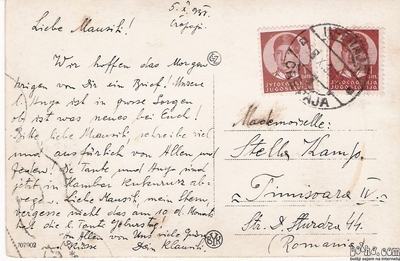 5. X. 1935.
Liebe Mausili!
Wir hoffen das Morgen
krigen von dir ein Brief! Unsere
l. Anyo ist in grosse Sorgen
ob ist was neues bei Euch!
Bitte liebe Mausili, schreibe viel
und ausfürlich von Allen und
Jeden! Die Tante und Anyo sind
jetzt in
Liebe Mausili, mein Stern,
vergesse nicht das am 10. d. Monats
hat die l. Tante Geburtstag!
in Allen von Uns viele Grüsse
und Küsse Dein Klausili
Mademoiselle:
Stella Kamp.
Timisoara IV.
Str. D. Sturdza 44
(Romania)
JUGOSLAVIJA
JUGOSLAVIJA
702902